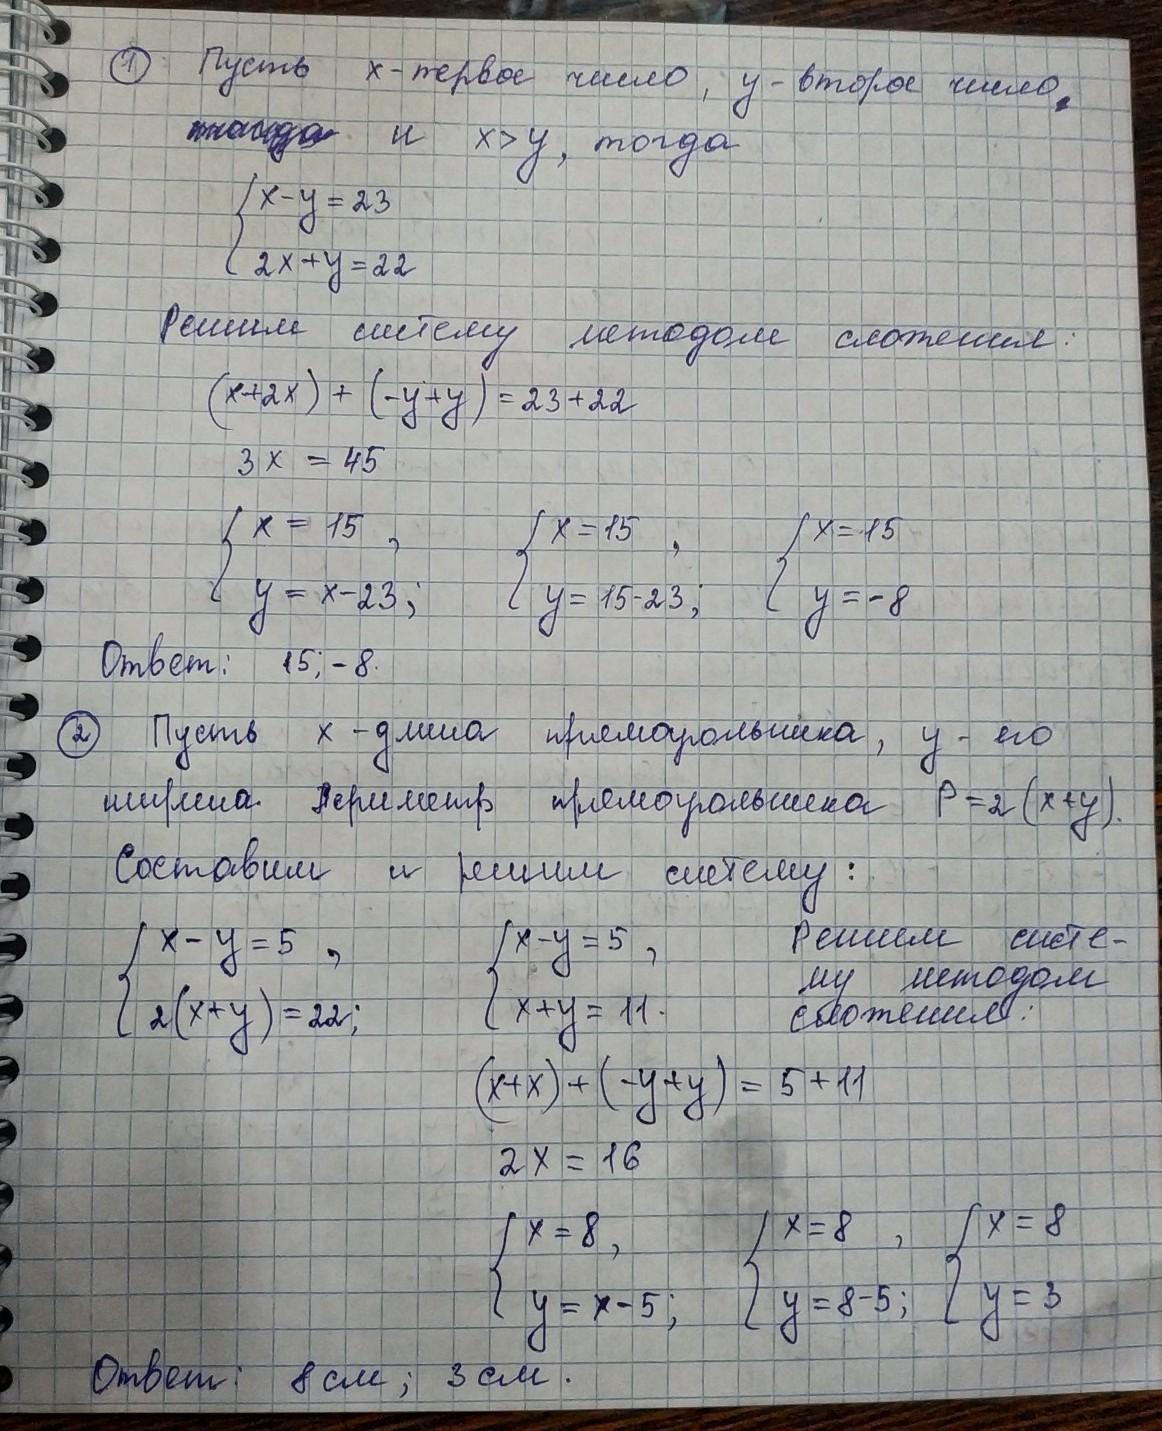 ① Пусть x - первое число, y - второе число,
и x > y, тогда
{ x - y = 23
{ 2x + y = 22
Решим систему методом сложения:
(x + 2x) + (-y + y) = 23 + 22
3x = 45
{ x = 15, { x = 15, { x = 15
{ y = x - 23; { y = 15 - 23; { y = -8
Ответ: 15; -8.
② Пусть x - длина прямоугольника, y - его
ширина. Периметр прямоугольника P = 2(x + y).
Составим и решим систему:
{ x - y = 5, { x - y = 5, Решим систе-
{ 2(x + y) = 22; { x + y = 11. му методом
сложения:
(x + x) + (-y + y) = 5 + 11
2x = 16
{ x = 8, { x = 8, { x = 8
{ y = x - 5; { y = 8 - 5; { y = 3
Ответ: 8 см; 3 см.